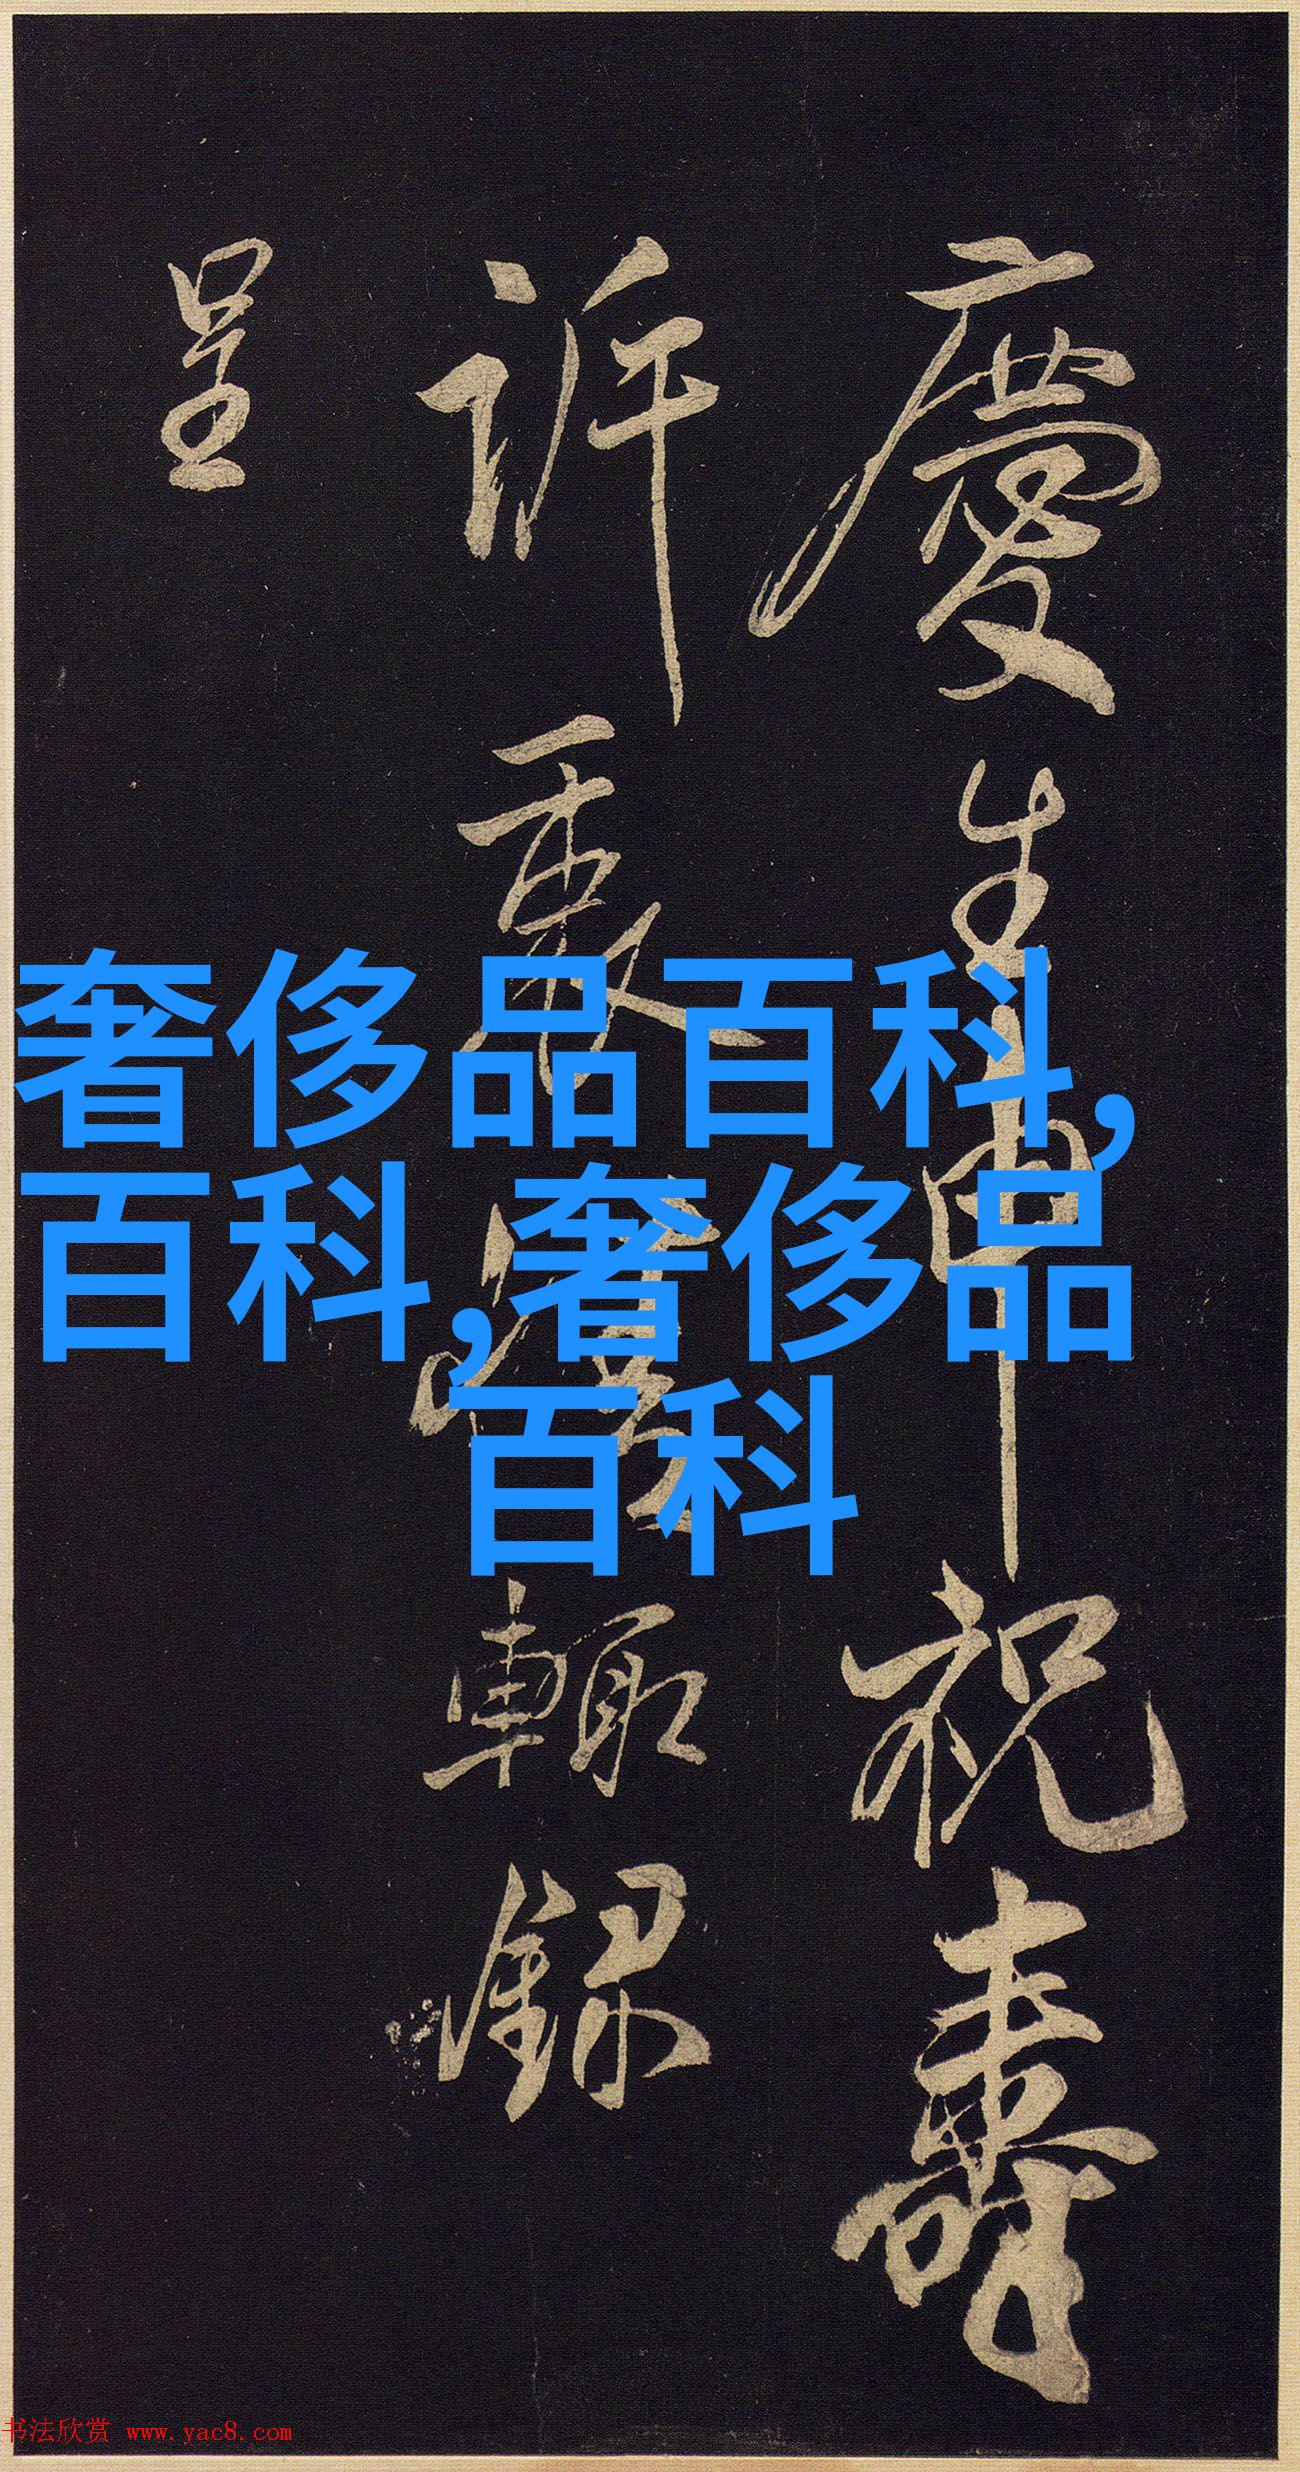 慶生申祝壽
訢
輙錄
呈
奢侈品百科,
百科,奢侈品
百科
书法欣赏 www.yac8.com